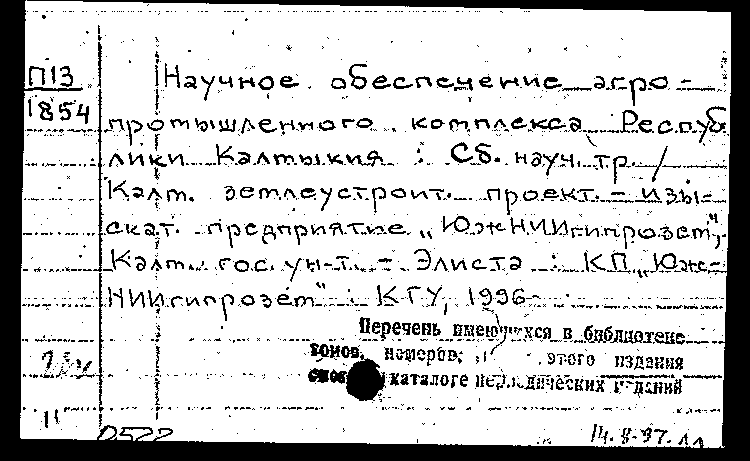 П13
1854
Научное обеспечение агро-
промышленного комплекса Респуб
лики Калмыкия : Сб. науч. тр. /
Калм. землеустроит. проект. - изы-
скат. предприятие „ЮжНИИгипрозем",
Калм. гос. ун-т. - Элиста : КП „Юж-
НИИгипрозем" : КГУ, 1996-
Перечень имеющихся в библиотеке
томов, номеров, этого издания
каталоге периодических изданий
11
0522
14.8.97.